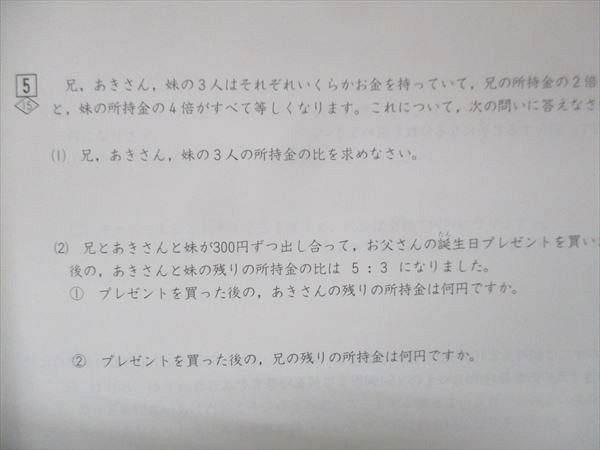 5
15
兄，あきさん，妹の３人はそれぞれいくらかお金を持っていて，兄の所持金の２倍
と，妹の所持金の４倍がすべて等しくなります。これについて，次の問いに答えなさ
⑴ 兄，あきさん，妹の３人の所持金の比を求めなさい。
⑵ 兄とあきさんと妹が300円ずつ出し合って，お父さんの誕生日プレゼントを買い
たん
後の，あきさんと妹の残りの所持金の比は ５：３ になりました。
① プレゼントを買った後の，あきさんの残りの所持金は何円ですか。
② プレゼントを買った後の，兄の残りの所持金は何円ですか。